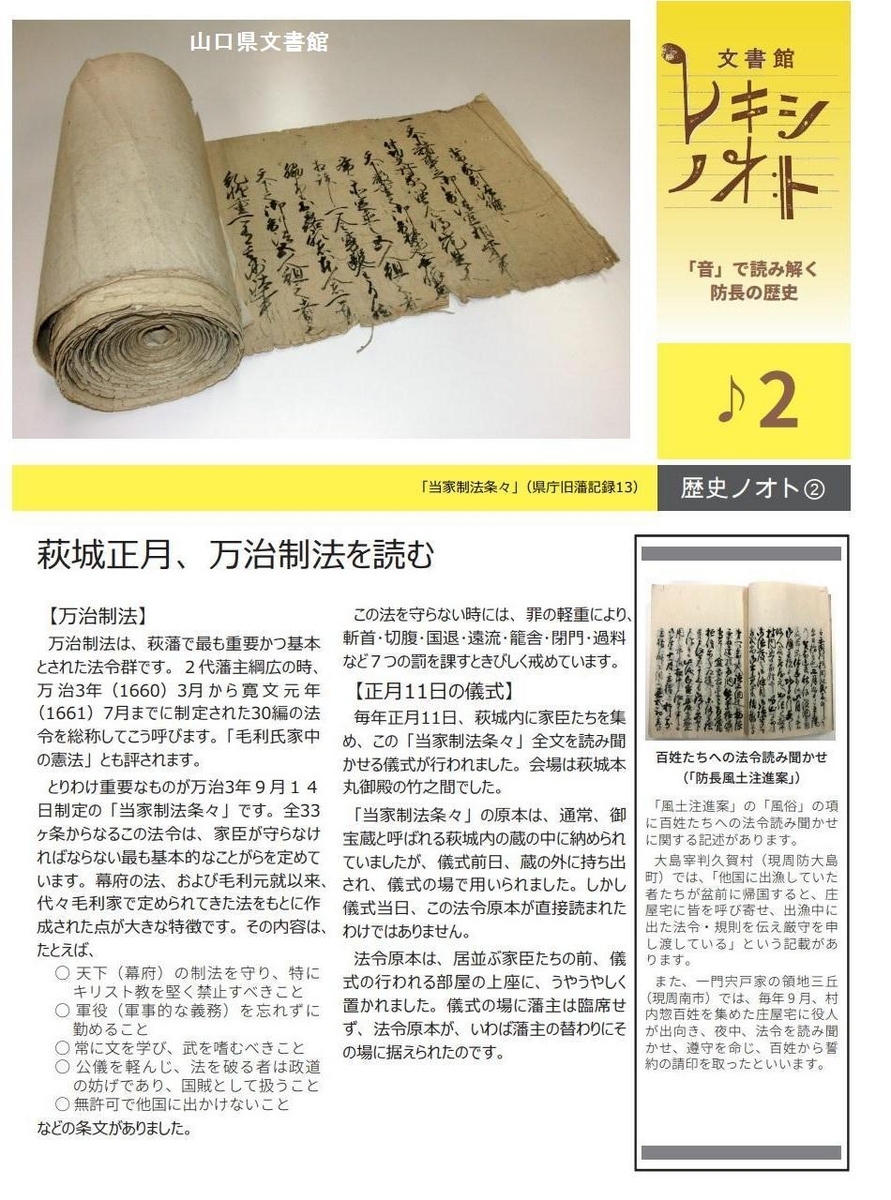 山口県文書館
文書館
レキシ
ノオト
「音」で読み解く
防長の歴史
♪2
「当家制法条々」（県庁旧藩記録13）
歴史ノオト②
萩城正月、万治制法を読む
【万治制法】
万治制法は、萩藩で最も重要かつ基本
とされた法令群です。２代藩主綱広の時、
万治3年（1660）3月から寛文元年
（1661）7月までに制定された30編の法
令を総称してこう呼びます。「毛利氏家中
の憲法」とも評されます。
とりわけ重要なものが万治3年９月１４
日制定の「当家制法条々」です。全33
ヶ条からなるこの法令は、家臣が守らなけ
ればならない最も基本的なことがらを定めて
います。幕府の法、および毛利元就以来、
代々毛利家で定められてきた法をもとに作
成された点が大きな特徴です。その内容は、
たとえば、
○ 天下（幕府）の制法を守り、特に
キリスト教を堅く禁止すべきこと
○ 軍役（軍事的な義務）を忘れずに
勤めること
○ 常に文を学び、武を嗜むべきこと
○ 公儀を軽んじ、法を破る者は政道
の妨げであり、国賊として扱うこと
○ 無許可で他国に出かけないこと
などの条文がありました。
この法を守らない時には、罪の軽重により、
斬首・切腹・国退・遠流・籠舎・閉門・過料
など７つの罰を課すときびしく戒めています。
【正月11日の儀式】
毎年正月11日、萩城内に家臣たちを集
め、この「当家制法条々」全文を読み聞
かせる儀式が行われました。会場は萩城本
丸御殿の竹之間でした。
「当家制法条々」の原本は、通常、御
宝蔵と呼ばれる萩城内の蔵の中に納められ
ていましたが、儀式前日、蔵の外に持ち出
され、儀式の場で用いられました。しかし
儀式当日、この法令原本が直接読まれた
わけではありません。
法令原本は、居並ぶ家臣たちの前、儀
式の行われる部屋の上座に、うやうやしく
置かれました。儀式の場に藩主は臨席せ
ず、法令原本が、いわば藩主の替わりにそ
の場に据えられたのです。
百姓たちへの法令読み聞かせ
（「防長風土注進案」）
「風土注進案」の「風俗」の項
に百姓たちへの法令読み聞かせ
に関する記述があります。
大島宰判久賀村（現周防大島
町）では、「他国に出漁していた
者たちが盆前に帰国すると、庄
屋宅に皆を呼び寄せ、出漁中に
出た法令・規則を伝え厳守を申
し渡している」という記載があ
ります。
また、一門宍戸家の領地三丘
（現周南市）では、毎年９月、村
内惣百姓を集めた庄屋宅に役人
が出向き、夜中、法令を読み聞
かせ、遵守を命じ、百姓から誓
約の請印を取ったといいます。